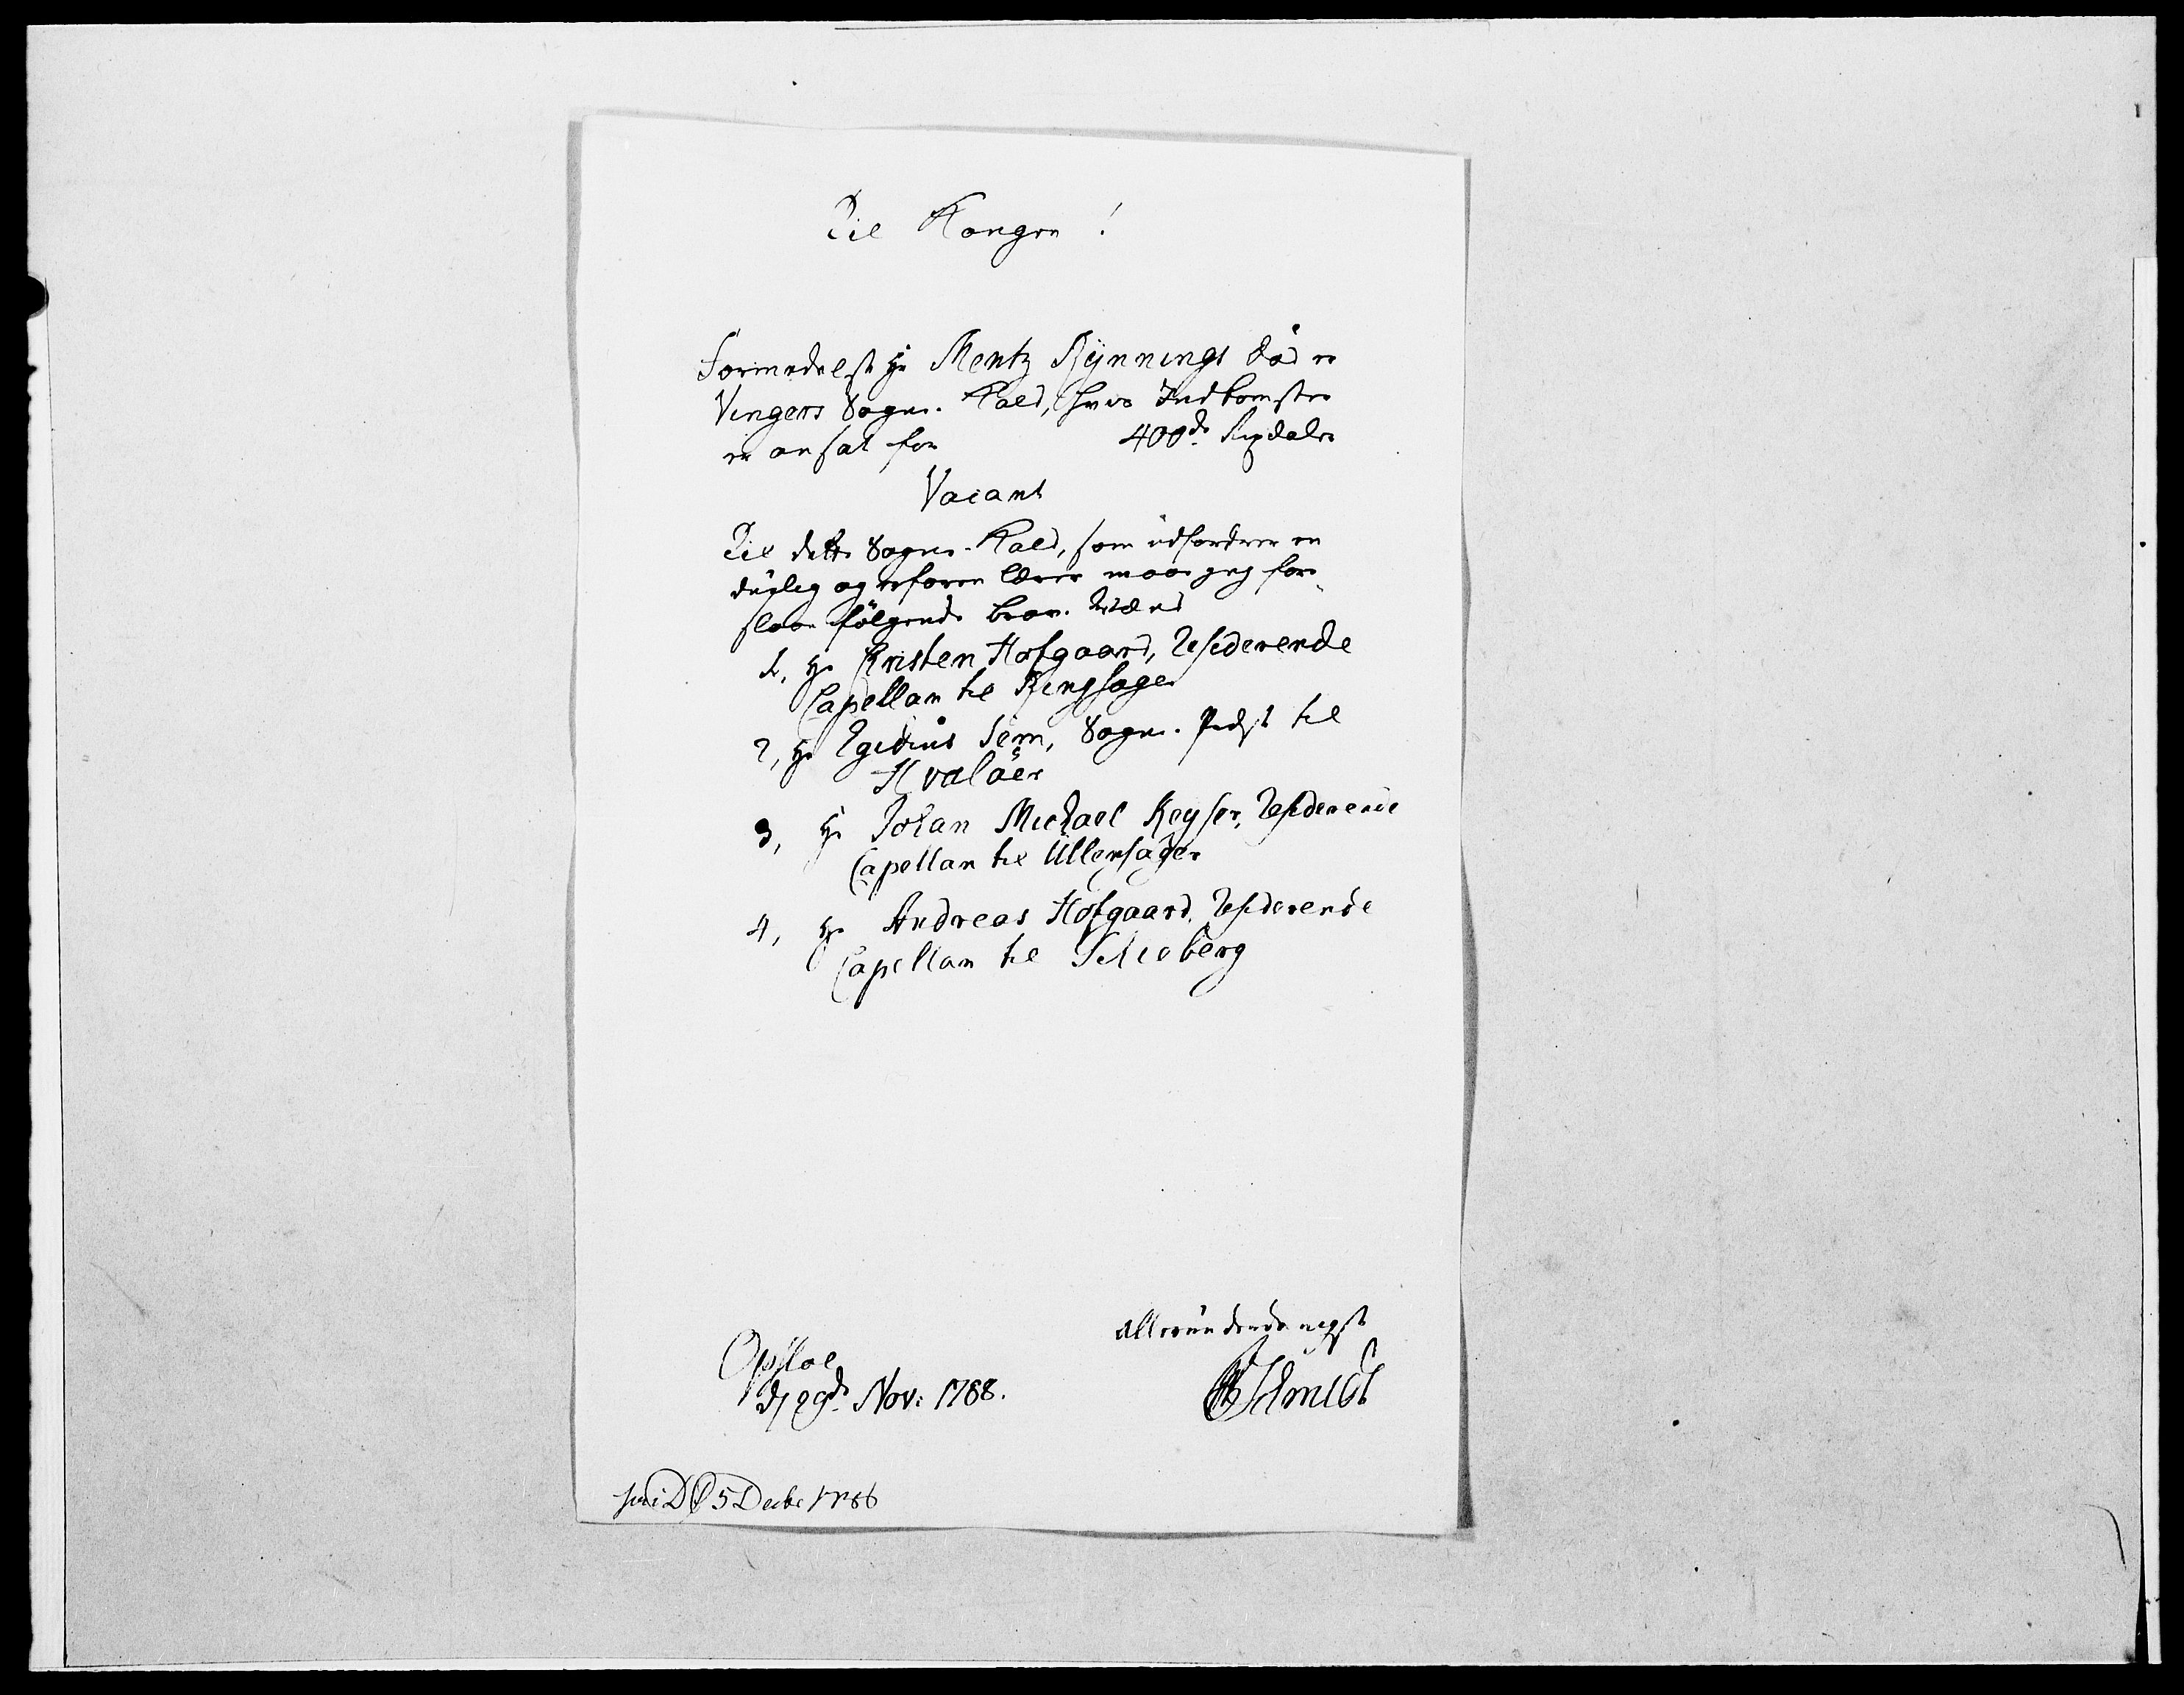 Til Kongen!
Formedelst Hr Mentz Rÿnnings Död er
Vingers Sogne-Kald, hvis Indkomster
er ansat for 400de Rixdaler
Vacant
Til dette Sogne-Kald, som udfordrer en
duelig og erfaren Lærer maae jeg fore-
slaae følgende brave Mænd
1, Hr Cristen Hofgaard, Residerende
Capellan til Ringsager
2, Hr Egidius Sem, Sogne-Præst til
Hvalöer
3, Hr Johan Michael Keyser, Residerende
Capellan til Ullensager
4, Hr Andreas Hofgaard, Residerende
Capellan til Schieberg
allerunderdanigst
Opsloe
d 29de Nov: 1788.
Schmidt
5 Decbr 1788